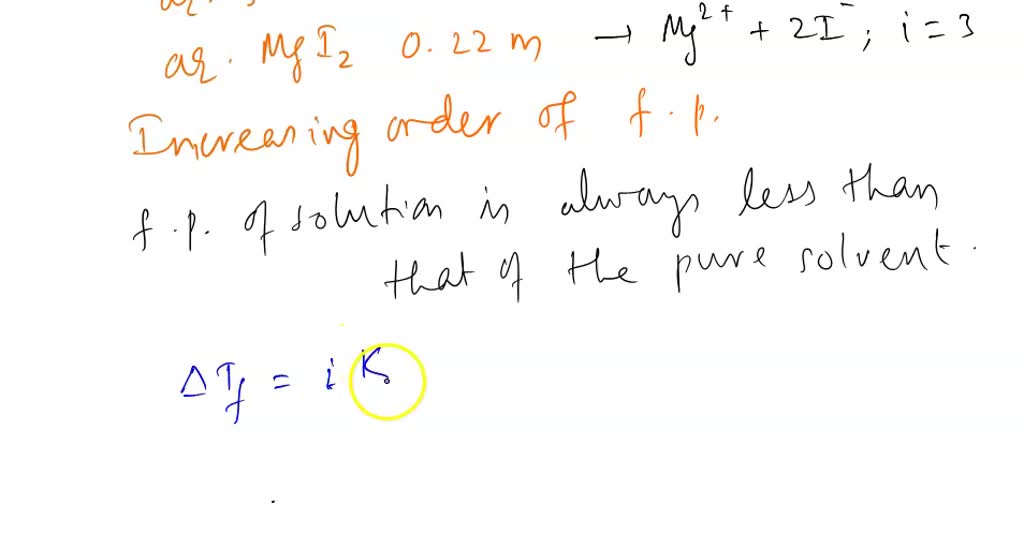 aq. MgI₂ 0.22 m → Mg²⁺ + 2I⁻ ; i = 3
Increasing order of f.p.
f.p. of solution is always less than
that of the pure solvent.
ΔTf = i K